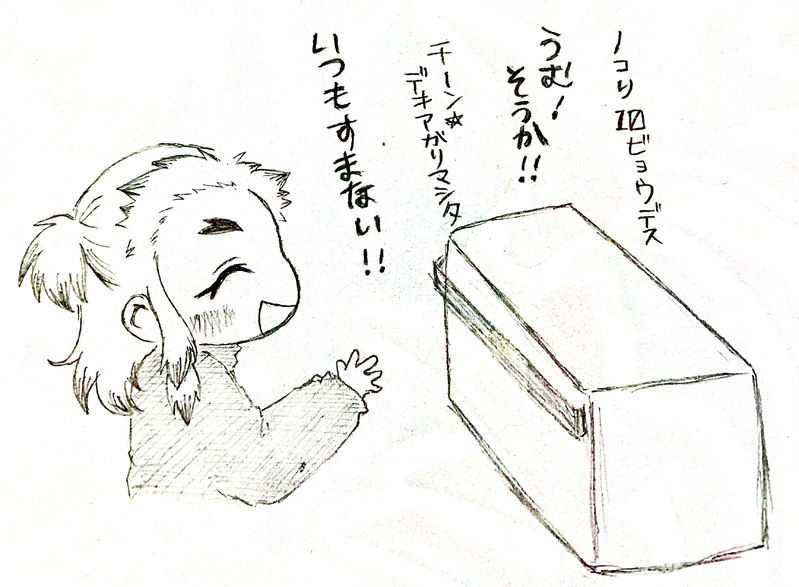 ノコリ10ビョウデス
うむ!
そうか!!
チーン☆
デキアガリマシタ
いつもすまない!!